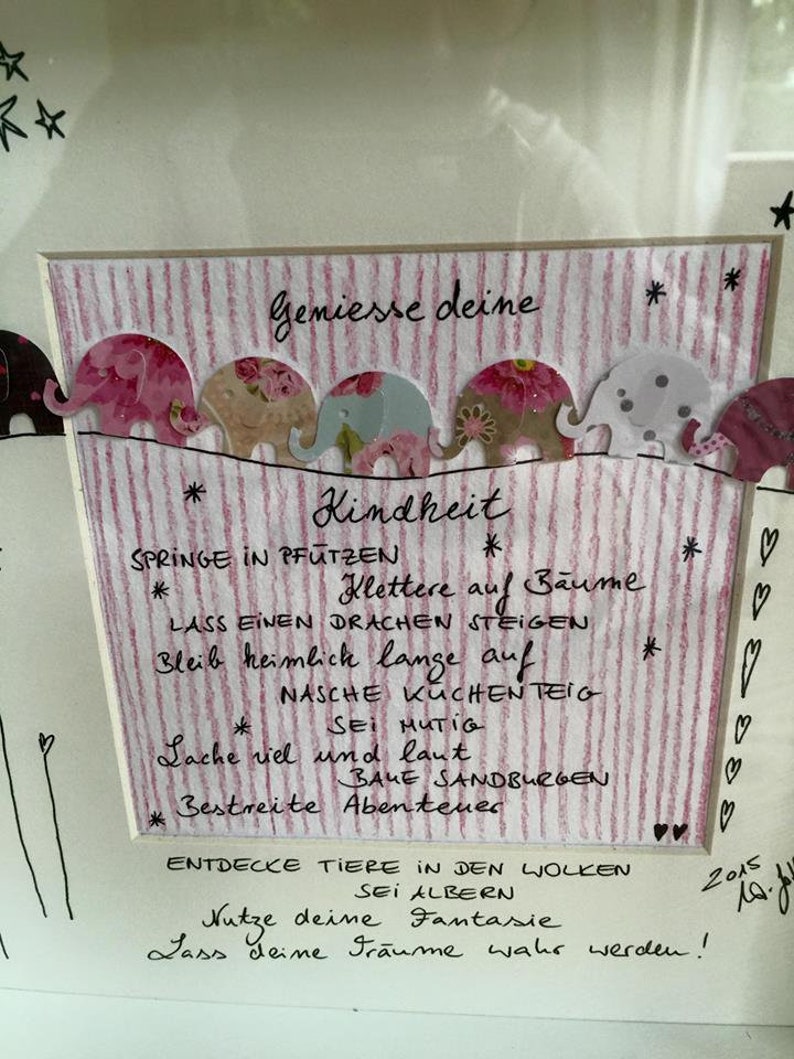 Geniesse deine
Kindheit
SPRINGE IN PFÜTZEN
Klettere auf Bäume
LASS EINEN DRACHEN STEIGEN
Bleib heimlich lange auf
NASCHE KUCHENTEIG
SEI MUTIG
Lache viel und laut
BAUE SANDBURGEN
Bestreite Abenteuer
ENTDECKE TIERE IN DEN WOLKEN
SEI ALBERN
Nutze deine Fantasie
Lass deine Träume wahr werden!
2015